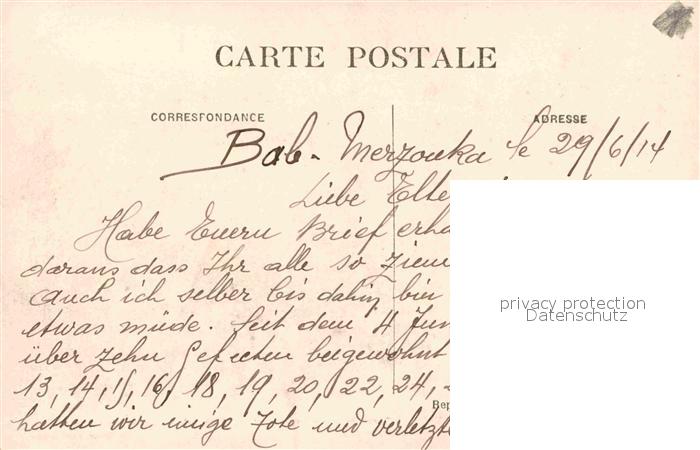 CARTE POSTALE
CORRESPONDANCE
ADRESSE
Bab-Merzouka le 29/6/14
Liebe Elte
Habe Euern Brief erha
daraus dass Ihr alle so ziem
auch ich selber bis dahin bin
etwas müde. Seit dem 4 Jun
über zehn Gefecten beigewohnt
13, 14, 15, 16, 18, 19, 20, 22, 24,
hatten wir einige Tote und verletzte
privacy protection
Datenschutz
Rep